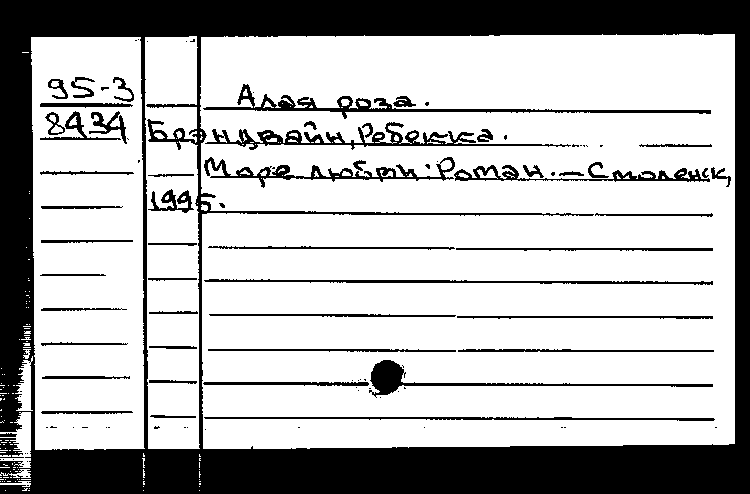 95-3 Алая роза.
8434 Брэндвайн, Ребекка.
Море любви: Роман. — Смоленск,
1995.